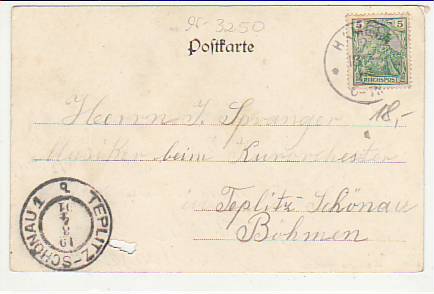 9F-3250
Postkarte
5 5
REICHSPOST
18,-
Herrn J. Spranger
Musiker beim Kurorchester
in Teplitz-Schönau
Böhmen
TEPLITZ-SCHÖNAU 1